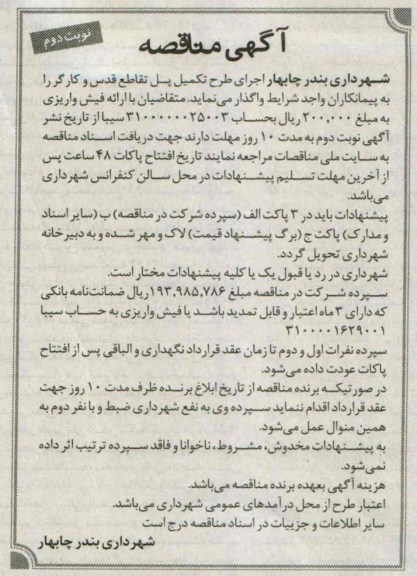 نوبت دوم
آگهی مناقصه
شهرداری بندر چابهار اجرای طرح تکمیل پل تقاطع قدس و کارگر را
به پیمانکاران واجد شرایط واگذار می‌نماید. متقاضیان با ارائه فیش واریزی
به مبلغ ۲۰۰,۰۰۰ ریال بحساب ۳۱۰۰۰۰۰۰۲۵۰۰۳ سیبا از تاریخ نشر
آگهی نوبت دوم به مدت ۱۰ روز مهلت دارند جهت دریافت اسناد مناقصه
به سایت ملی مناقصات مراجعه نمایند تاریخ افتتاح پاکات ۴۸ ساعت پس
از آخرین مهلت تسلیم پیشنهادات در محل سالن کنفرانس شهرداری
می‌باشد.
پیشنهادات باید در ۳ پاکت الف (سپرده شرکت در مناقصه) ب (سایر اسناد
و مدارک) پاکت ج (برگ پیشنهاد قیمت) لاک و مهر شده و به دبیرخانه
شهرداری تحویل گردد.
شهرداری در رد یا قبول یک یا کلیه پیشنهادات مختار است.
سپرده شرکت در مناقصه مبلغ ۱۹۳,۹۸۵,۷۸۶ ریال ضمانت‌نامه بانکی
که دارای ۳ ماه اعتبار و قابل تمدید باشد یا فیش واریزی به حساب سیبا
۳۱۰۰۰۰۱۶۲۹۰۰۱
سپرده نفرات اول و دوم تا زمان عقد قرارداد نگهداری و الباقی پس از افتتاح
پاکات عودت داده می‌شود.
در صورتیکه برنده مناقصه از تاریخ ابلاغ برنده ظرف مدت ۱۰ روز جهت
عقد قرارداد اقدام ننماید سپرده وی به نفع شهرداری ضبط و با نفر دوم به
همین منوال عمل می‌شود.
به پیشنهادات مخدوش، مشروط، ناخوانا و فاقد سپرده ترتیب اثر داده
نمی‌شود.
هزینه آگهی بعهده برنده مناقصه می‌باشد.
اعتبار طرح از محل درآمدهای عمومی شهرداری می‌باشد.
سایر اطلاعات و جزییات در اسناد مناقصه درج است
شهرداری بندر چابهار